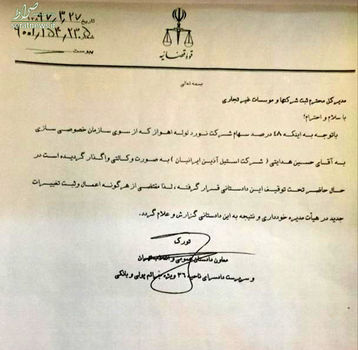 صراط
eratnews.ir
قوه قضائیه
تاریخ ۹۷,۳,۲۷
۹۰۰۱,۱۵۴,۲۳,۵
پیوست
بسمه تعالی
مدیر کل محترم ثبت شرکتها و موسسات غیر تجاری
با سلام و احترام؛
باتوجه به اینکه ۴۸ درصد سهام شرکت نورد لوله اهواز که از سوی سازمان خصوصی سازی
به آقای حسین هدایتی ( شرکت استیل آذین ایرانیان ) به صورت وکالتی واگذار گردیده است در
حال حاضر تحت توقیف این دادستانی قرار گرفته ، لذا مقتضی از هرگونه اعمال وثبت تغییرات
جدید در هیأت مدیره خودداری و نتیجه به این دادستانی گزارش و اعلام گردد.
تورک
معاون دادستان عمومی و انقلاب تهران
و سرپرست دادسرای ناحیه ۳۶ ویژه جرائم پولی و بانکی